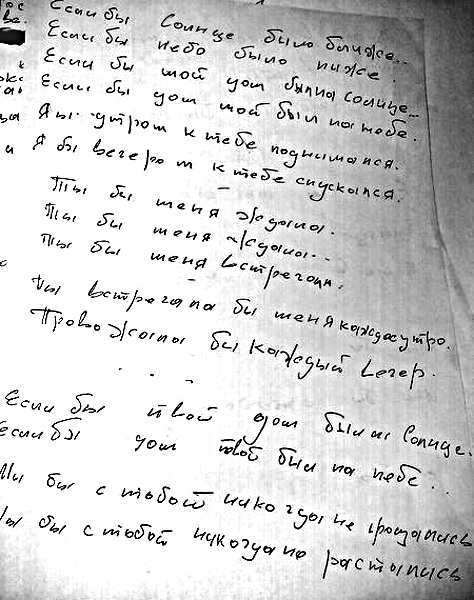 Если бы Солнце было ближе...
Если бы небо было ниже.
Если бы мой дом был на Солнце...
Если бы дом мой был на небе.
Я бы утром к тебе поднимался.
Я бы вечером к тебе спускался.
Ты бы меня ждала.
Ты бы меня ждала...
Ты бы меня встречала.
Ты встречала бы меня каждое утро.
Провожала бы каждый вечер.
. . .
Если бы твой дом был на Солнце.
если бы дом твой был на небе...
Мы бы с тобой никогда не прощались
Мы бы с тобой никогда не растались